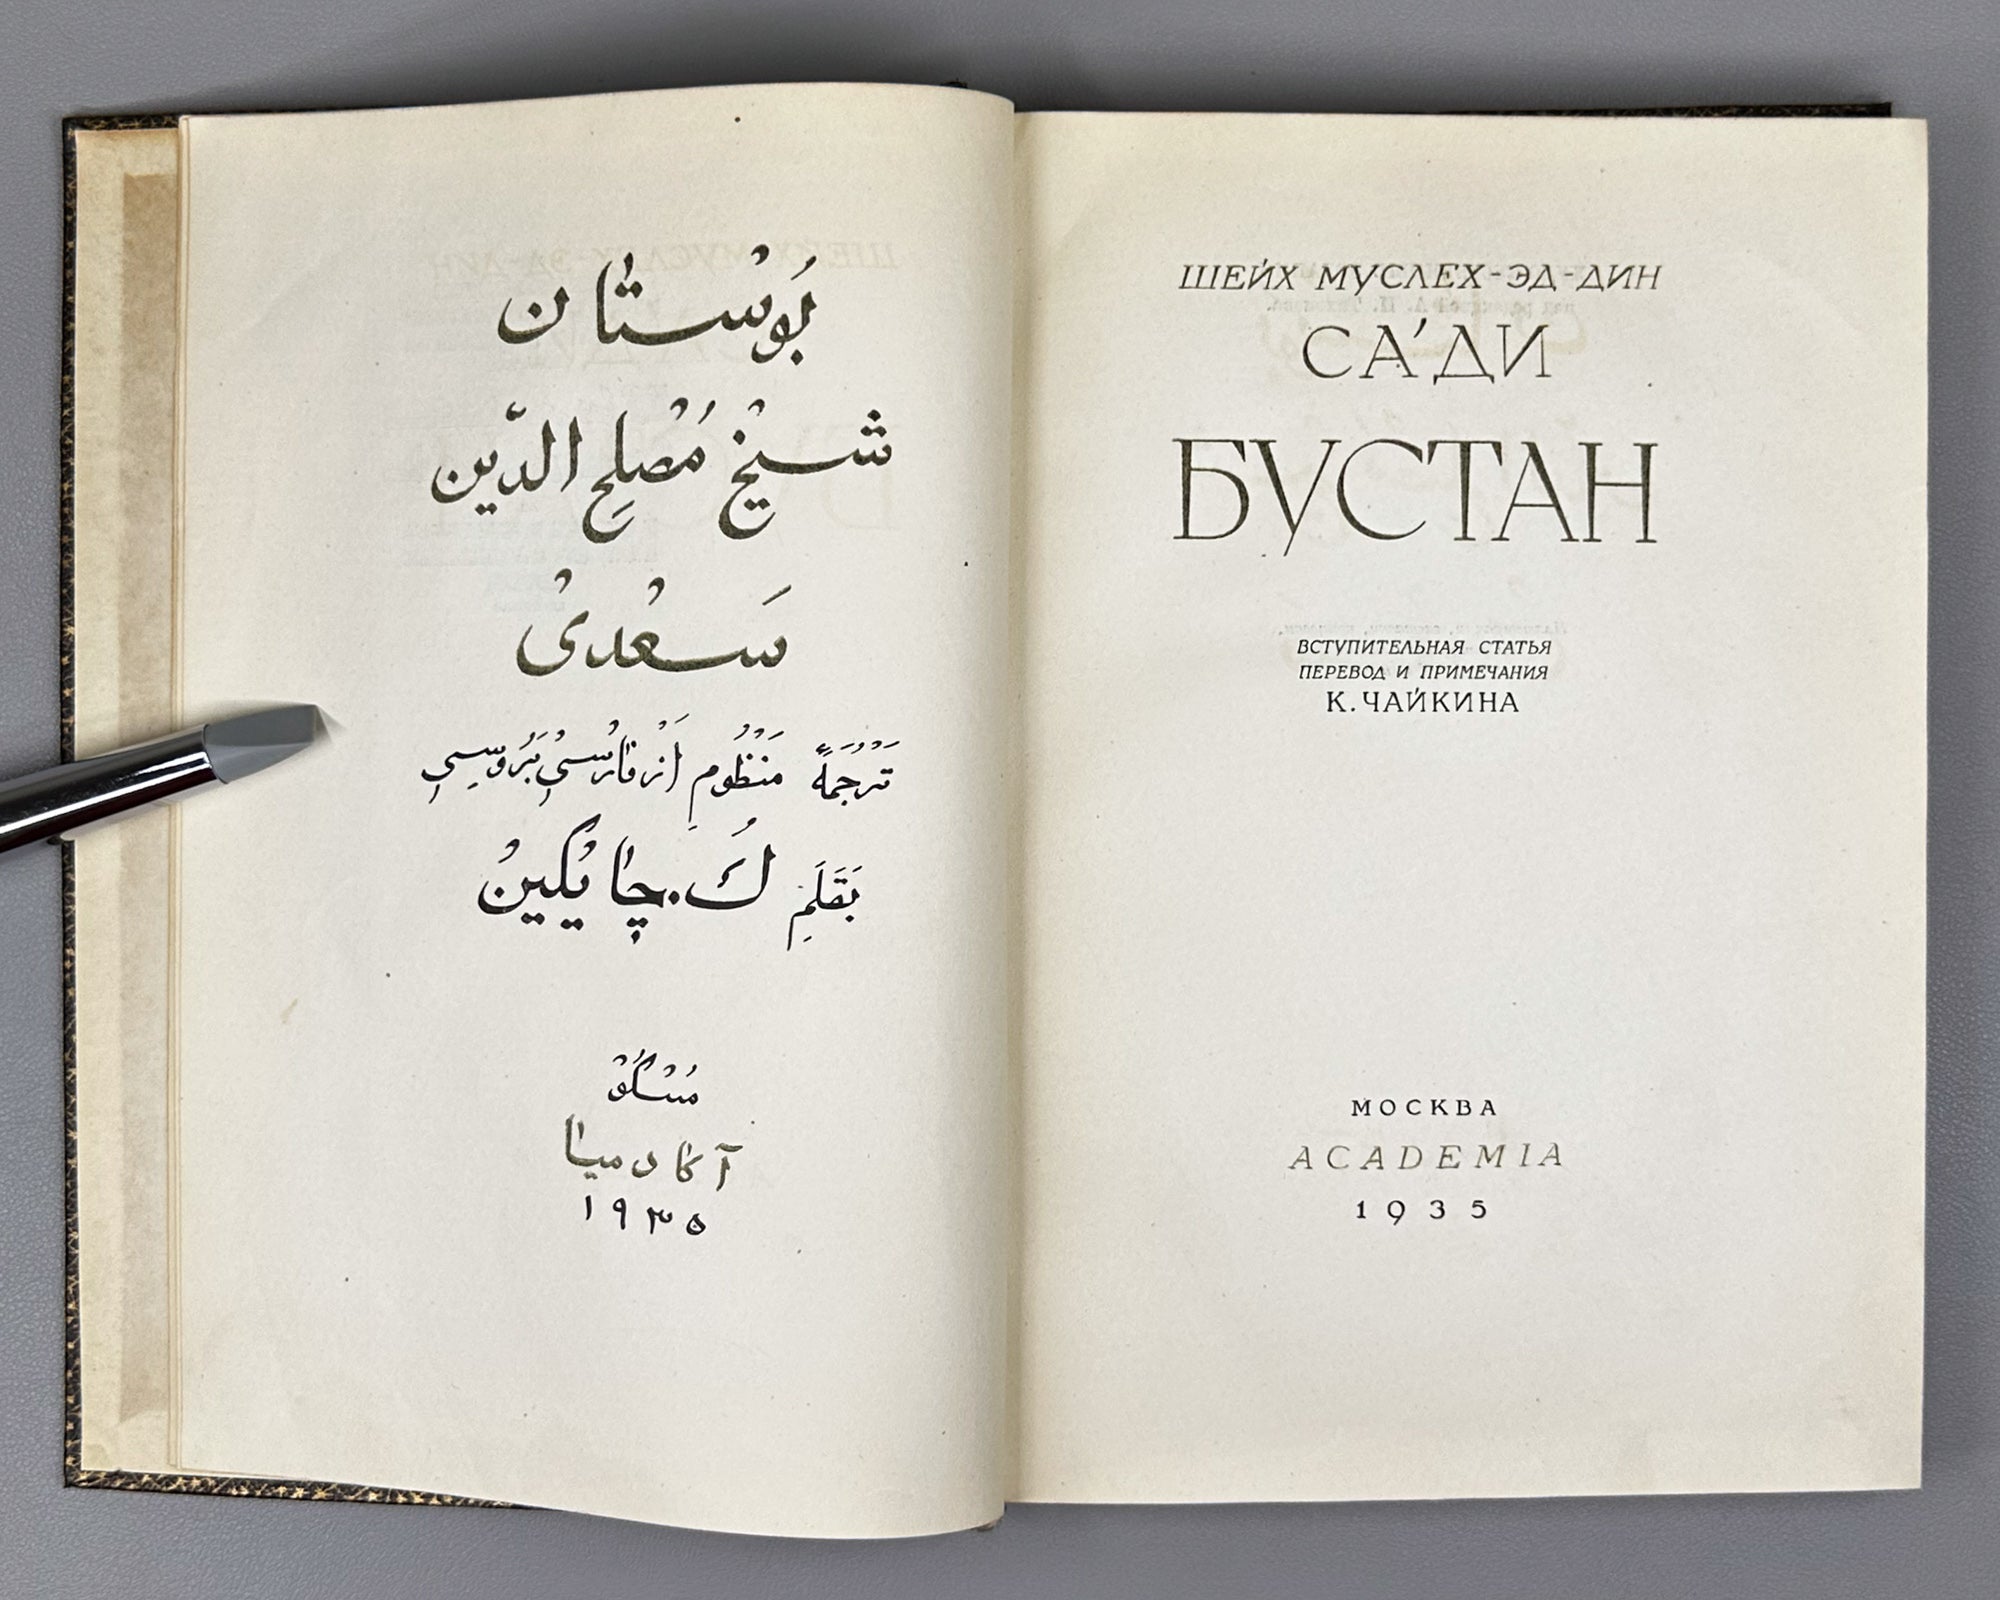 بُوسْتان
شیْخ مُصْلِح الدّین
سَعْدیْ
تَرْجُمَهٔ مَنْظُومِ اَزْ فارْسیْ بَرُوسیِ
بَقَلَمِ کُ. چایْکینْ
مُسْکُوْ
آکادمیا
۱۹۳۵
ШЕЙХ МУСЛЕХ-ЭД-ДИН
СА'ДИ
БУСТАН
ВСТУПИТЕЛЬНАЯ СТАТЬЯ
ПЕРЕВОД И ПРИМЕЧАНИЯ
К. ЧАЙКИНА
МОСКВА
ACADEMIA
1935